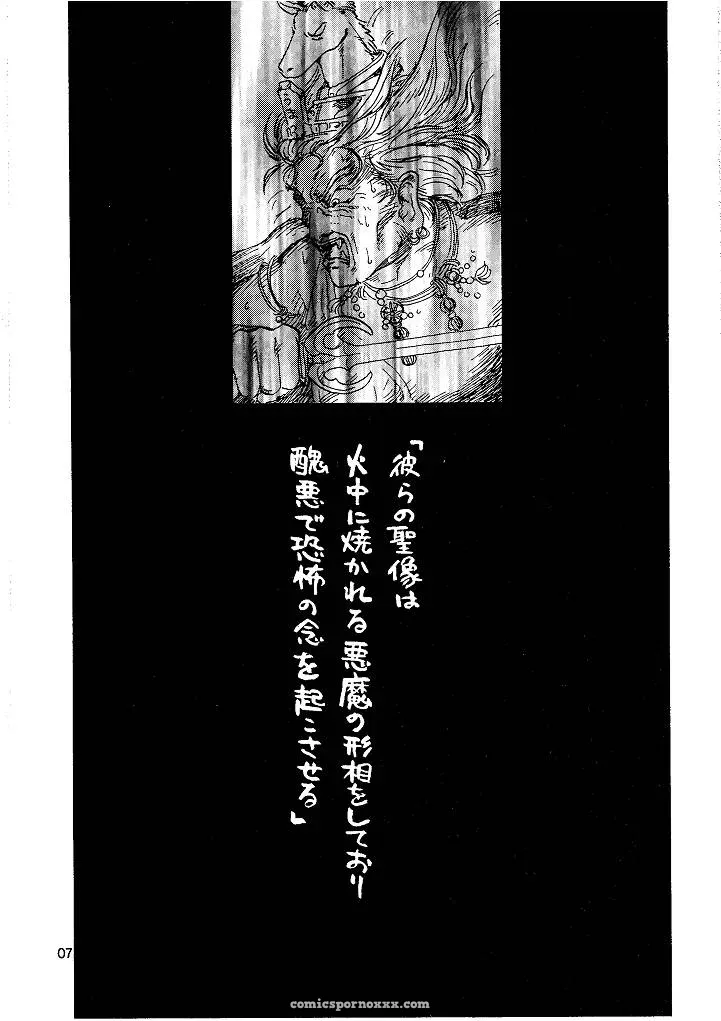 「彼らの聖像は
火中に焼かれる悪魔の形相をしており
醜悪で恐怖の念を起こさせる」
07
comicspornoxxx.com